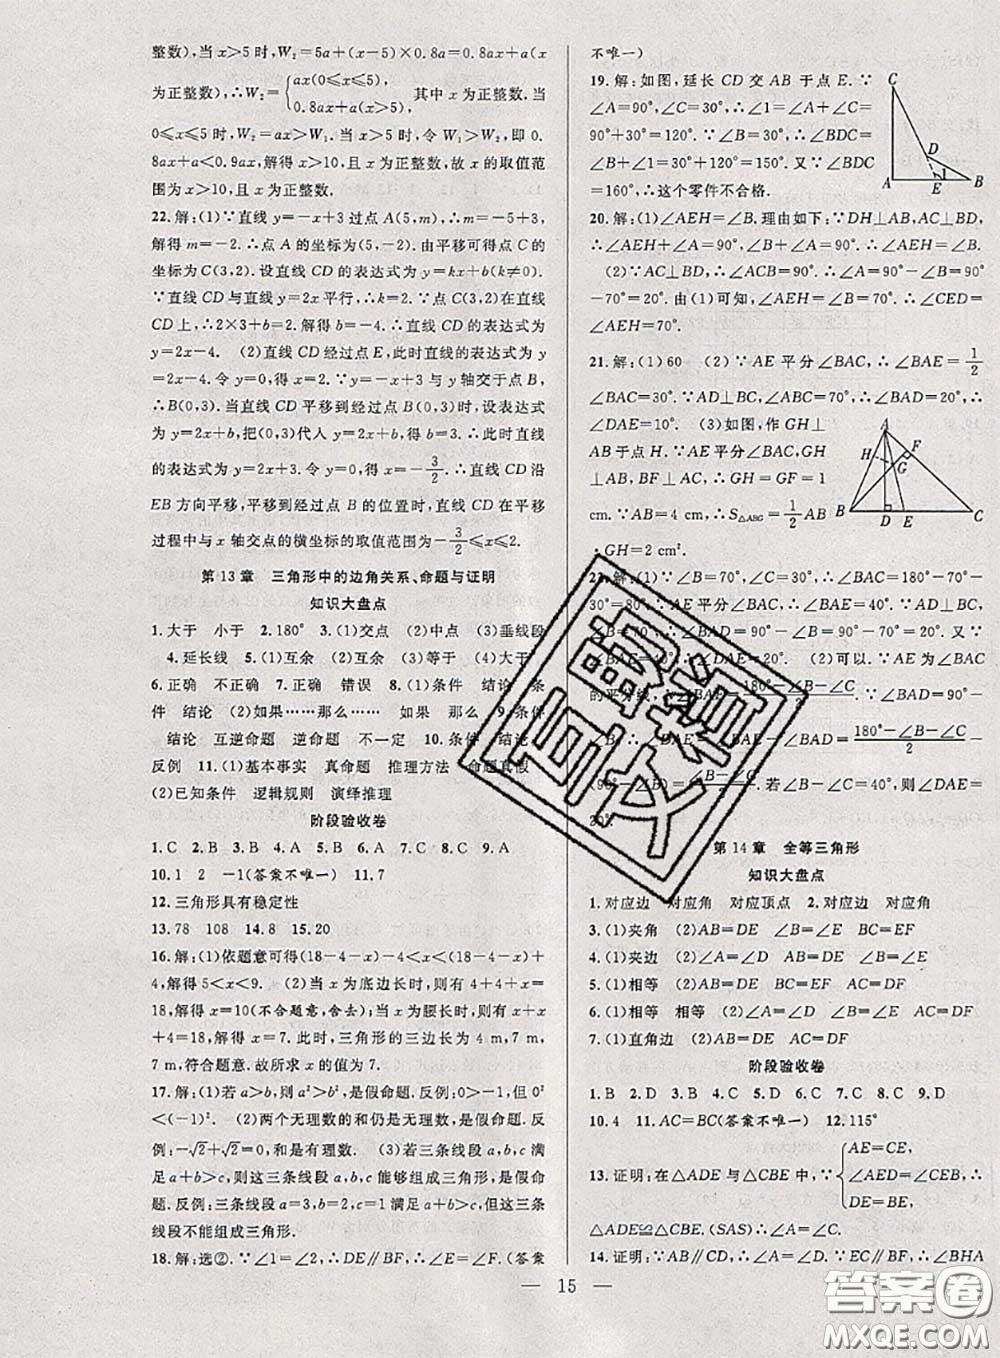 整数),当 x>5 时,W₂=5a+(x-5)×0.8a=0.8ax+a(x
为正整数),∴W₂={ax(0≤x≤5), 0.8ax+a(x>5), 其中 x 为正整数.当
0≤x≤5 时,W₂=ax>W₁.当 x>5 时,令 W₁>W₂,即 0.
8ax+a<0.9ax,解得 x>10,且 x 为正整数,故 x 的取值范
围为 x>10,且 x 为正整数.
22.解:(1)∵直线 y=-x+3 过点 A(5,m),∴m=-5+3,
解得 m=-2.∴点 A 的坐标为(5,-2).由平移可得点 C 的
坐标为 C(3,2).设直线 CD 的表达式为 y=kx+b(k≠0).
∵直线 CD 与直线 y=2x 平行,∴k=2.∵点 C(3,2)在直线
CD 上,∴2×3+b=2.解得 b=-4.∴直线 CD 的表达式为
y=2x-4. (2)直线 CD 经过点 E,此时直线的表达式为 y
=2x-4.令 y=0,得 x=2.∵y=-x+3 与 y 轴交于点 B,
∴B(0,3).当直线 CD 平移到经过点 B(0,3)时,设表达式
为 y=2x+b,把(0,3)代人 y=2x+b,得 b=3.∴此时直线
的表达式为 y=2x+3.令 y=0,得 x=-3/2.∴直线 CD 沿
EB 方向平移,平移到经过点 B 的位置时,直线 CD 在平移
过程中与 x 轴交点的横坐标的取值范围为-3/2≤x≤2.
第 13 章 三角形中的边角关系、命题与证明
知识大盘点
1.大于 小于 2.180° 3.(1)交点 (2)中点 (3)垂线段
4.延长线 5.(1)互余 (2)互余 (3)等于 (4)大于
6.正确 不正确 7.正确 错误 8.(1)条件 结论 条
件 结论 (2)如果……那么…… 如果 那么 9.条件
结论 互逆命题 逆命题 不一定 10.条件 结论
反例 11.(1)基本事实 真命题 推理方法 命题真假
(2)已知条件 逻辑规则 演绎推理
阶段验收卷
1.C 2.B 3.B 4.A 5.A 6.A 7.C 8.C 9.A
10.1 2 -1(答案不唯一) 11.7
12.三角形具有稳定性
13.78 108 14.8 15.20
16.解:(1)依题意可得(18-4-x)-4<x<(18-4-x)+
4,解得 5<x<9. (2)当 x 为底边长时,则有 x+4+4=
18,解得 x=10(不合题意,舍去);当 x 为腰长时,则有 x+x
+4=18,解得 x=7,此时,三角形的三边长为 4 m,7 m,
7 m,符合题意.故所求 x 的值为 7.
17.解:(1)若 a>b,则 a²>b²,是假命题.反例:0>-1,但 0²
<(-1)². (2)两个无理数的和仍是无理数,是假命题.反
例:-√2+√2=0,和是有理数. (3)若三条线段 a,b,c 满
足 a+b>c,则这三条线段 a,b,c 能够组成三角形,是假命
题.反例:三条线段 a=3,b=2,c=1 满足 a+b>c,但这三条
线段不能组成三角形.
18.解:选②.∵∠1=∠2,∴DE∥BF,∴∠E=∠F.(答案
不唯一)
19.解:如图,延长 CD 交 AB 于点 E.∵
∠A=90°,∠C=30°,∴∠1=∠A+∠C=
90°+30°=120°.∵∠B=30°,∴∠BDC=
∠B+∠1=30°+120°=150°.又∵∠BDC
=160°,∴这个零件不合格.
C
D
1
A E B
20.解:(1)∠AEH=∠B.理由如下:∵DH⊥AB,AC⊥BD,
∴∠AEH+∠A=90°,∠A+∠B=90°.∴∠AEH=∠B.
(2)∵AC⊥BD,∴∠ACB=90°.∴∠B=90°-∠A=
70°.由(1)可知,∠AEH=∠B=70°.∴∠CED=
∠AEH=70°.
21.解:(1)60 (2)∵AE 平分∠BAC,∴∠BAE=1/2
∠BAC=30°.∵AD⊥BC,∠B=70°,∴∠BAD=20°,∴
∠DAE=10°. (3)如图,作 GH⊥
AB 于点 H.∵AE 平分∠BAC,GH⊥
AB,GF⊥AC,∴GH=GF=1
cm.∵AB=4 cm,∴S△ABG=1/2 AB
·GH=2 cm².
A
H F
G
B D E C
22.解:(1)∵∠BAC=180°-∠B-∠C=180°-70°-
30°=80°,∵AE 平分∠BAC,∴∠BAE=40°.∵AD⊥BC,
∠B=70°,∴∠BAD=90°-∠B=90°-70°=20°.又∵
∠BAE=40°,∴∠DAE=20°. (2)可以.∵AE 为∠BAC
的平分线,∴∠BAE=(180°-∠B-∠C)/2.∵∠BAD=90°-
∠B,∴∠DAE=∠BAE-∠BAD=(180°-∠B-∠C)/2-
(90°-∠B)=(∠B-∠C)/2.若∠B-∠C=40°,则∠DAE=
20°.
第 14 章 全等三角形
知识大盘点
1.对应边 对应角 对应顶点 2.对应边 对应角
3.(1)夹角 (2)AB=DE ∠B=∠E BC=EF
4.(1)夹边 (2)∠A=∠D AB=DE ∠B=∠E
5.(1)相等 (2)AB=DE BC=EF AC=DF
6.(1)相等 相等 (2)∠A=∠D ∠B=∠E
7.(1)直角边 (2)AB=DE AC=DF
阶段验收卷
1.B 2.D 3.B 4.C 5.D 6.D 7.C 8.C 9.D
10.4 11.AC=BC(答案不唯一) 12.115°
13.证明:在△ADE 与△CBE 中,∵{AE=CE, ∠AED=∠CEB,∴ DE=BE,
△ADE≌△CBE.(SAS)∴∠A=∠C.
14.证明:∵AB∥CD,∴∠A=∠C.∵BH∥DF,∴∠BHA
— 15 —
答案圈
MXQE.COM